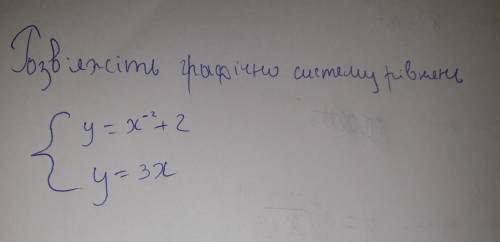 Розв'яжіть графічно систему рівнянь
y = x⁻² + 2
y = 3x